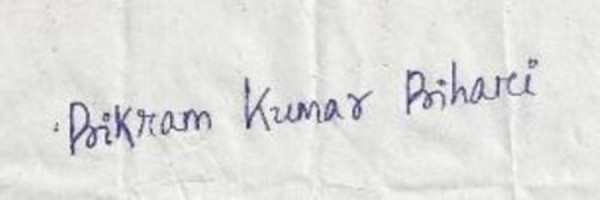 Bikram Kumar Bihari